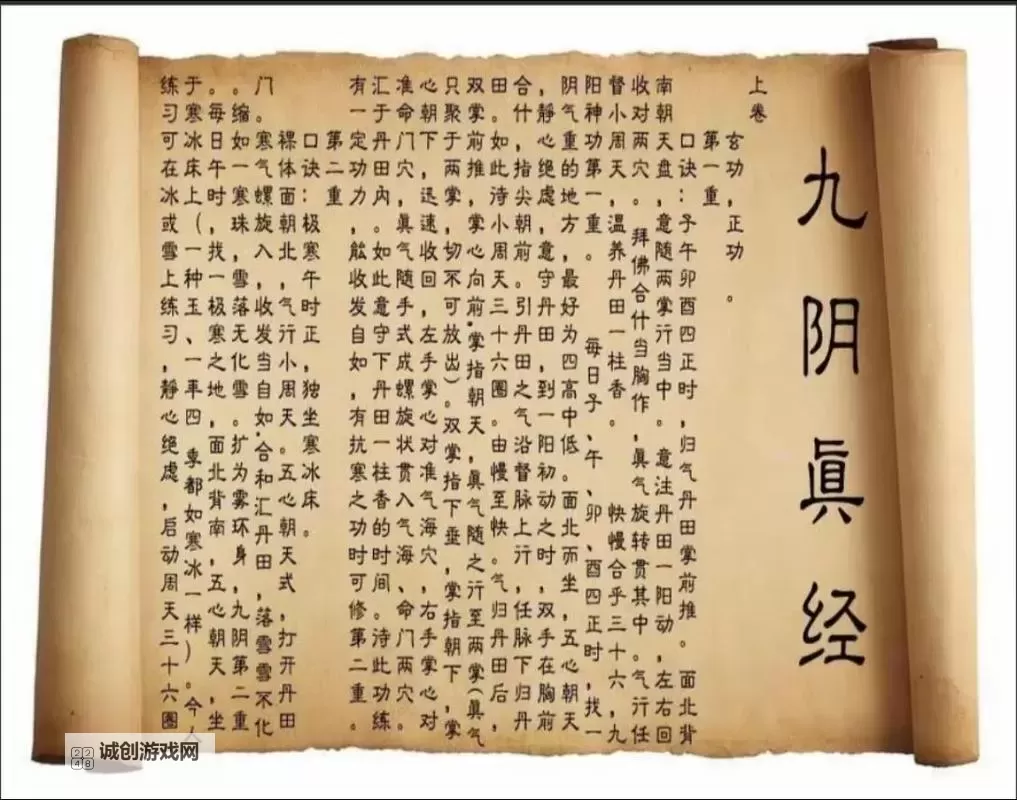 九阴眞经
上卷
玄功，正功。
第一重
口诀：子午卯酉四正时，归气丹田掌前推。面北背
南朝天盘，意随两掌行当中。意注丹田一阳动，左右回
收对两穴。拜佛合什当胸作，眞气旋转贯其中。气行任
督小周天，温养丹田一柱香。快慢合乎三十六，九
阳神功第一重。每日子、午、卯、酉四正时，找一
阴气重的地方，最好为四高中低。面北而坐，五心朝天
，静心绝虑，意守丹田，到一阳初动之时，双手在胸前
合什，指尖朝前。引丹田之气沿督脉上行，任脉下归丹
田。如此待小周天三十六圈。由慢至快。气归丹田后，
双掌前推，掌心向前.掌指朝天，眞气随之行至两掌(眞气
只聚于两掌，切不可放出)。双掌指下垂，掌指朝下，掌
心朝下，迅速收回，左手掌心对准气海穴，右手掌心对
准命门穴，眞气随手式成螺旋状贯入气海、命门两穴。
汇于丹田内。如此意守下丹田一柱香的时间。待此功练
有一定功力，能收发自如，有抗寒之功时可修第二重。
第二重
口诀：极寒午时正，独坐寒冰床。
裸体面朝北，气行小周天。五心朝天式，打开丹田
门。寒气螺旋入，收发当自如.合和汇丹田，落雪雪不化
。缩如一寒珠，雪落无化雪。扩为雾环身，九阴第二重
。每日午时，找一极寒之地，面北背南，五心朝天，坐
于寒冰床上(一种玉、一年四季都如寒冰一样)。今人
练习可在冰或雪上练习，静心绝虑，启动周天三十六圈
2248
诚创游戏网